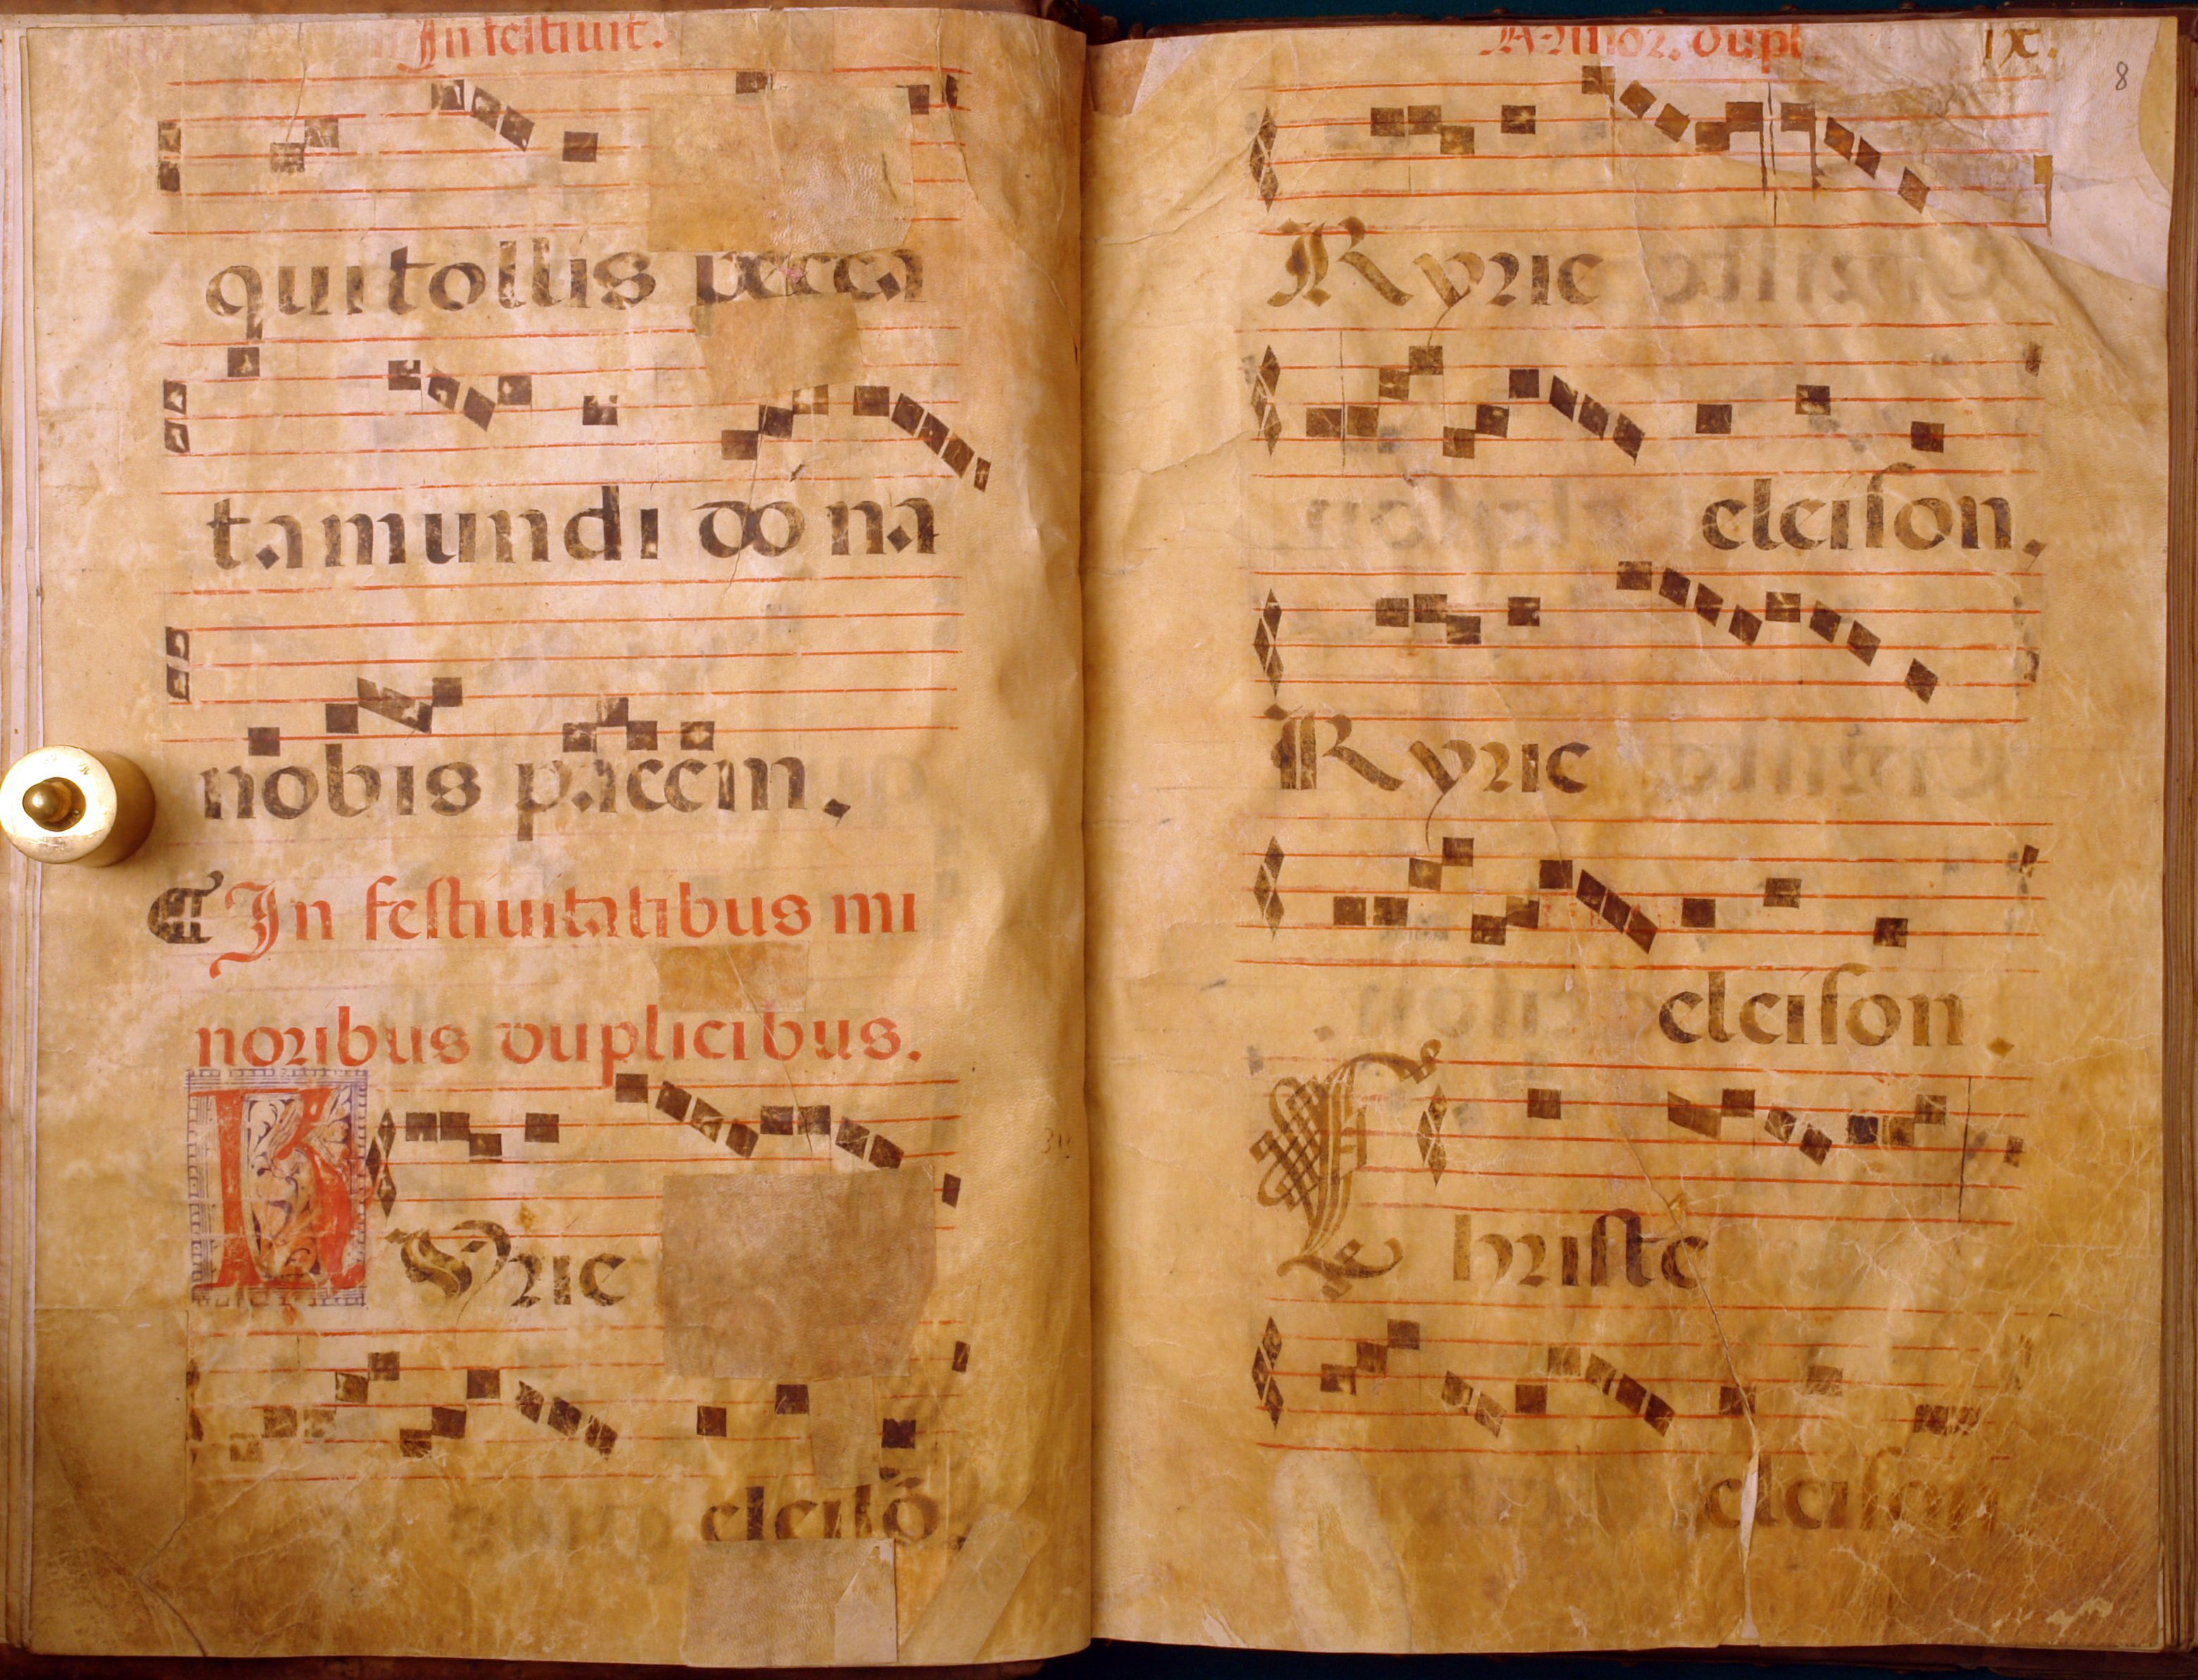 In festiuit.
qui tollis pecca
ta mundi dona
nobis pacem.
In festiuitatibus mi
noribus duplicibus.
Kyrie
eleisõ.
Minor. dupl
ix.
8
Kyrie
eleison.
Kyrie
eleison.
Christe
eleison